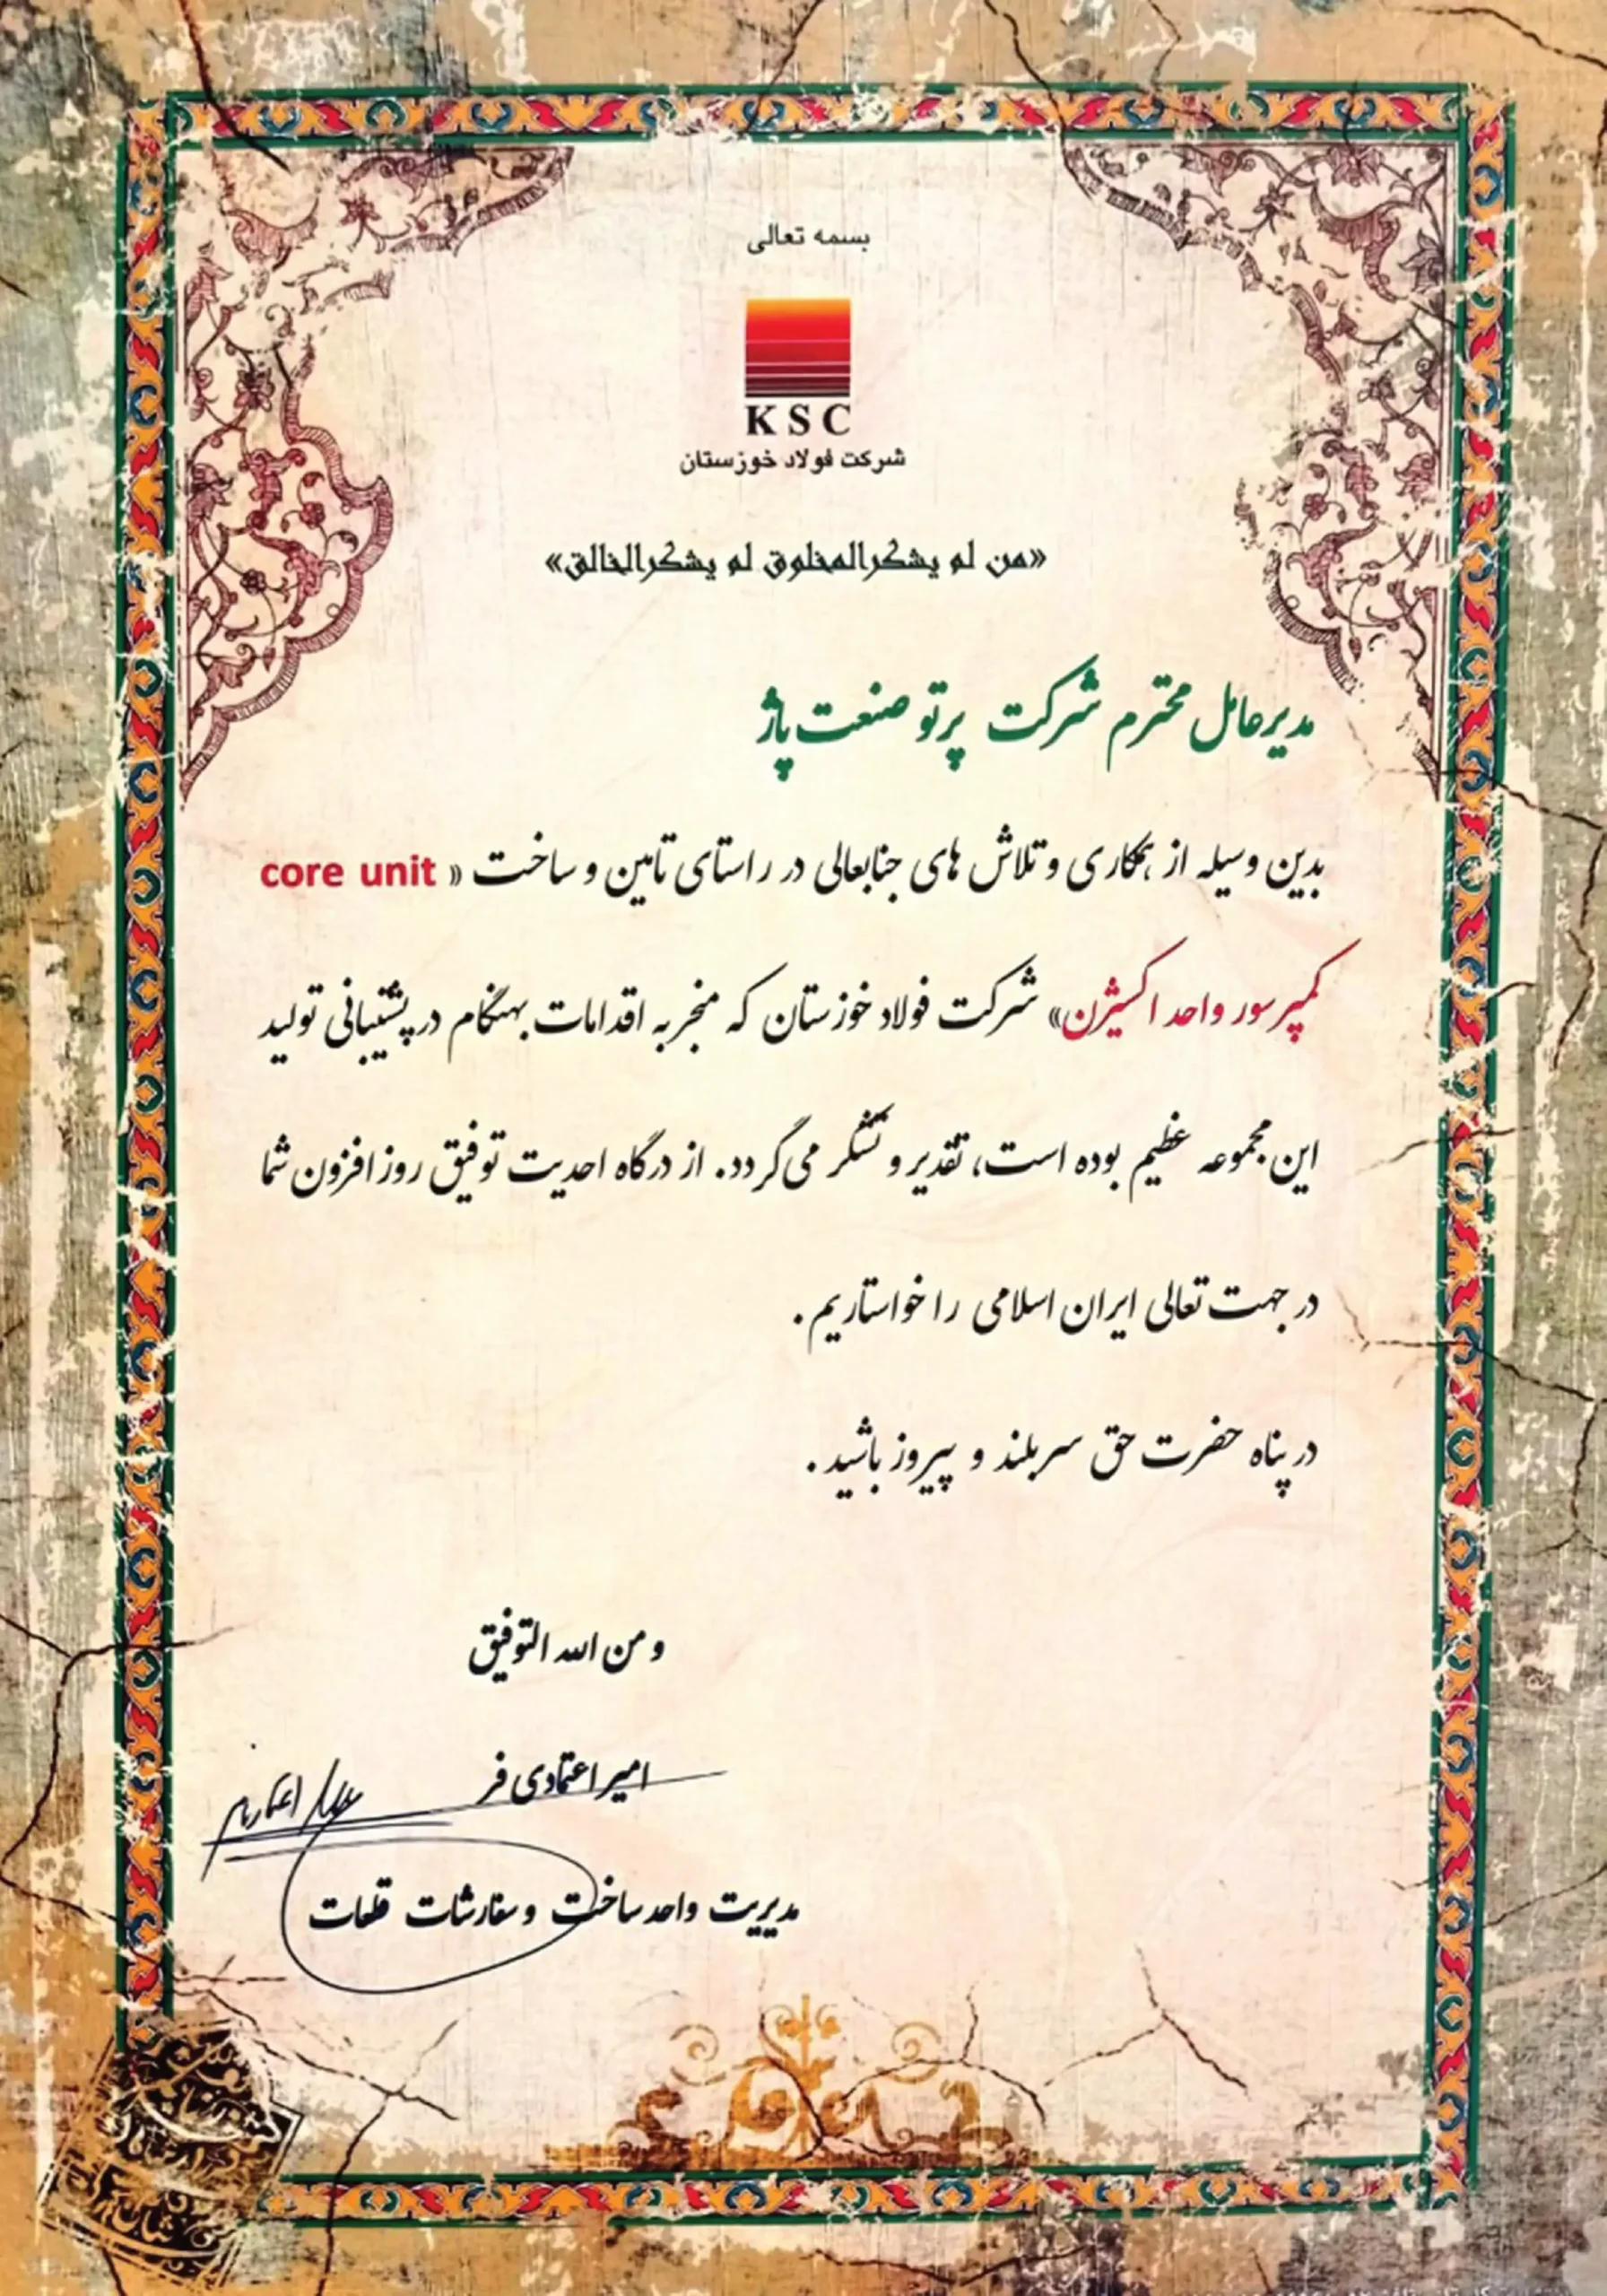 بسمه تعالی
KSC
شرکت فولاد خوزستان
«من لم یشکرالمخلوق لم یشکرالخالق»
مدیرعامل محترم شرکت پرتو صنعت پاژ
بدین وسیله از همکاری و تلاش های جنابعالی در راستای تامین و ساخت « core unit
کمپرسور واحد اکسیژن» شرکت فولاد خوزستان که منجر به اقدامات بهنگام در پشتیبانی تولید
این مجموعه عظیم بوده است، تقدیر و تشکر می گردد. از درگاه احدیت توفیق روز افزون شما
در جهت تعالی ایران اسلامی را خواستاریم.
در پناه حضرت حق سربلند و پیروز باشید.
و من الله التوفیق
امیر اعتمادی فر
مدیریت واحد ساخت و سفارشات قطعات